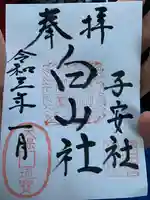 奉拝
白山社
子安社
令和三年一月